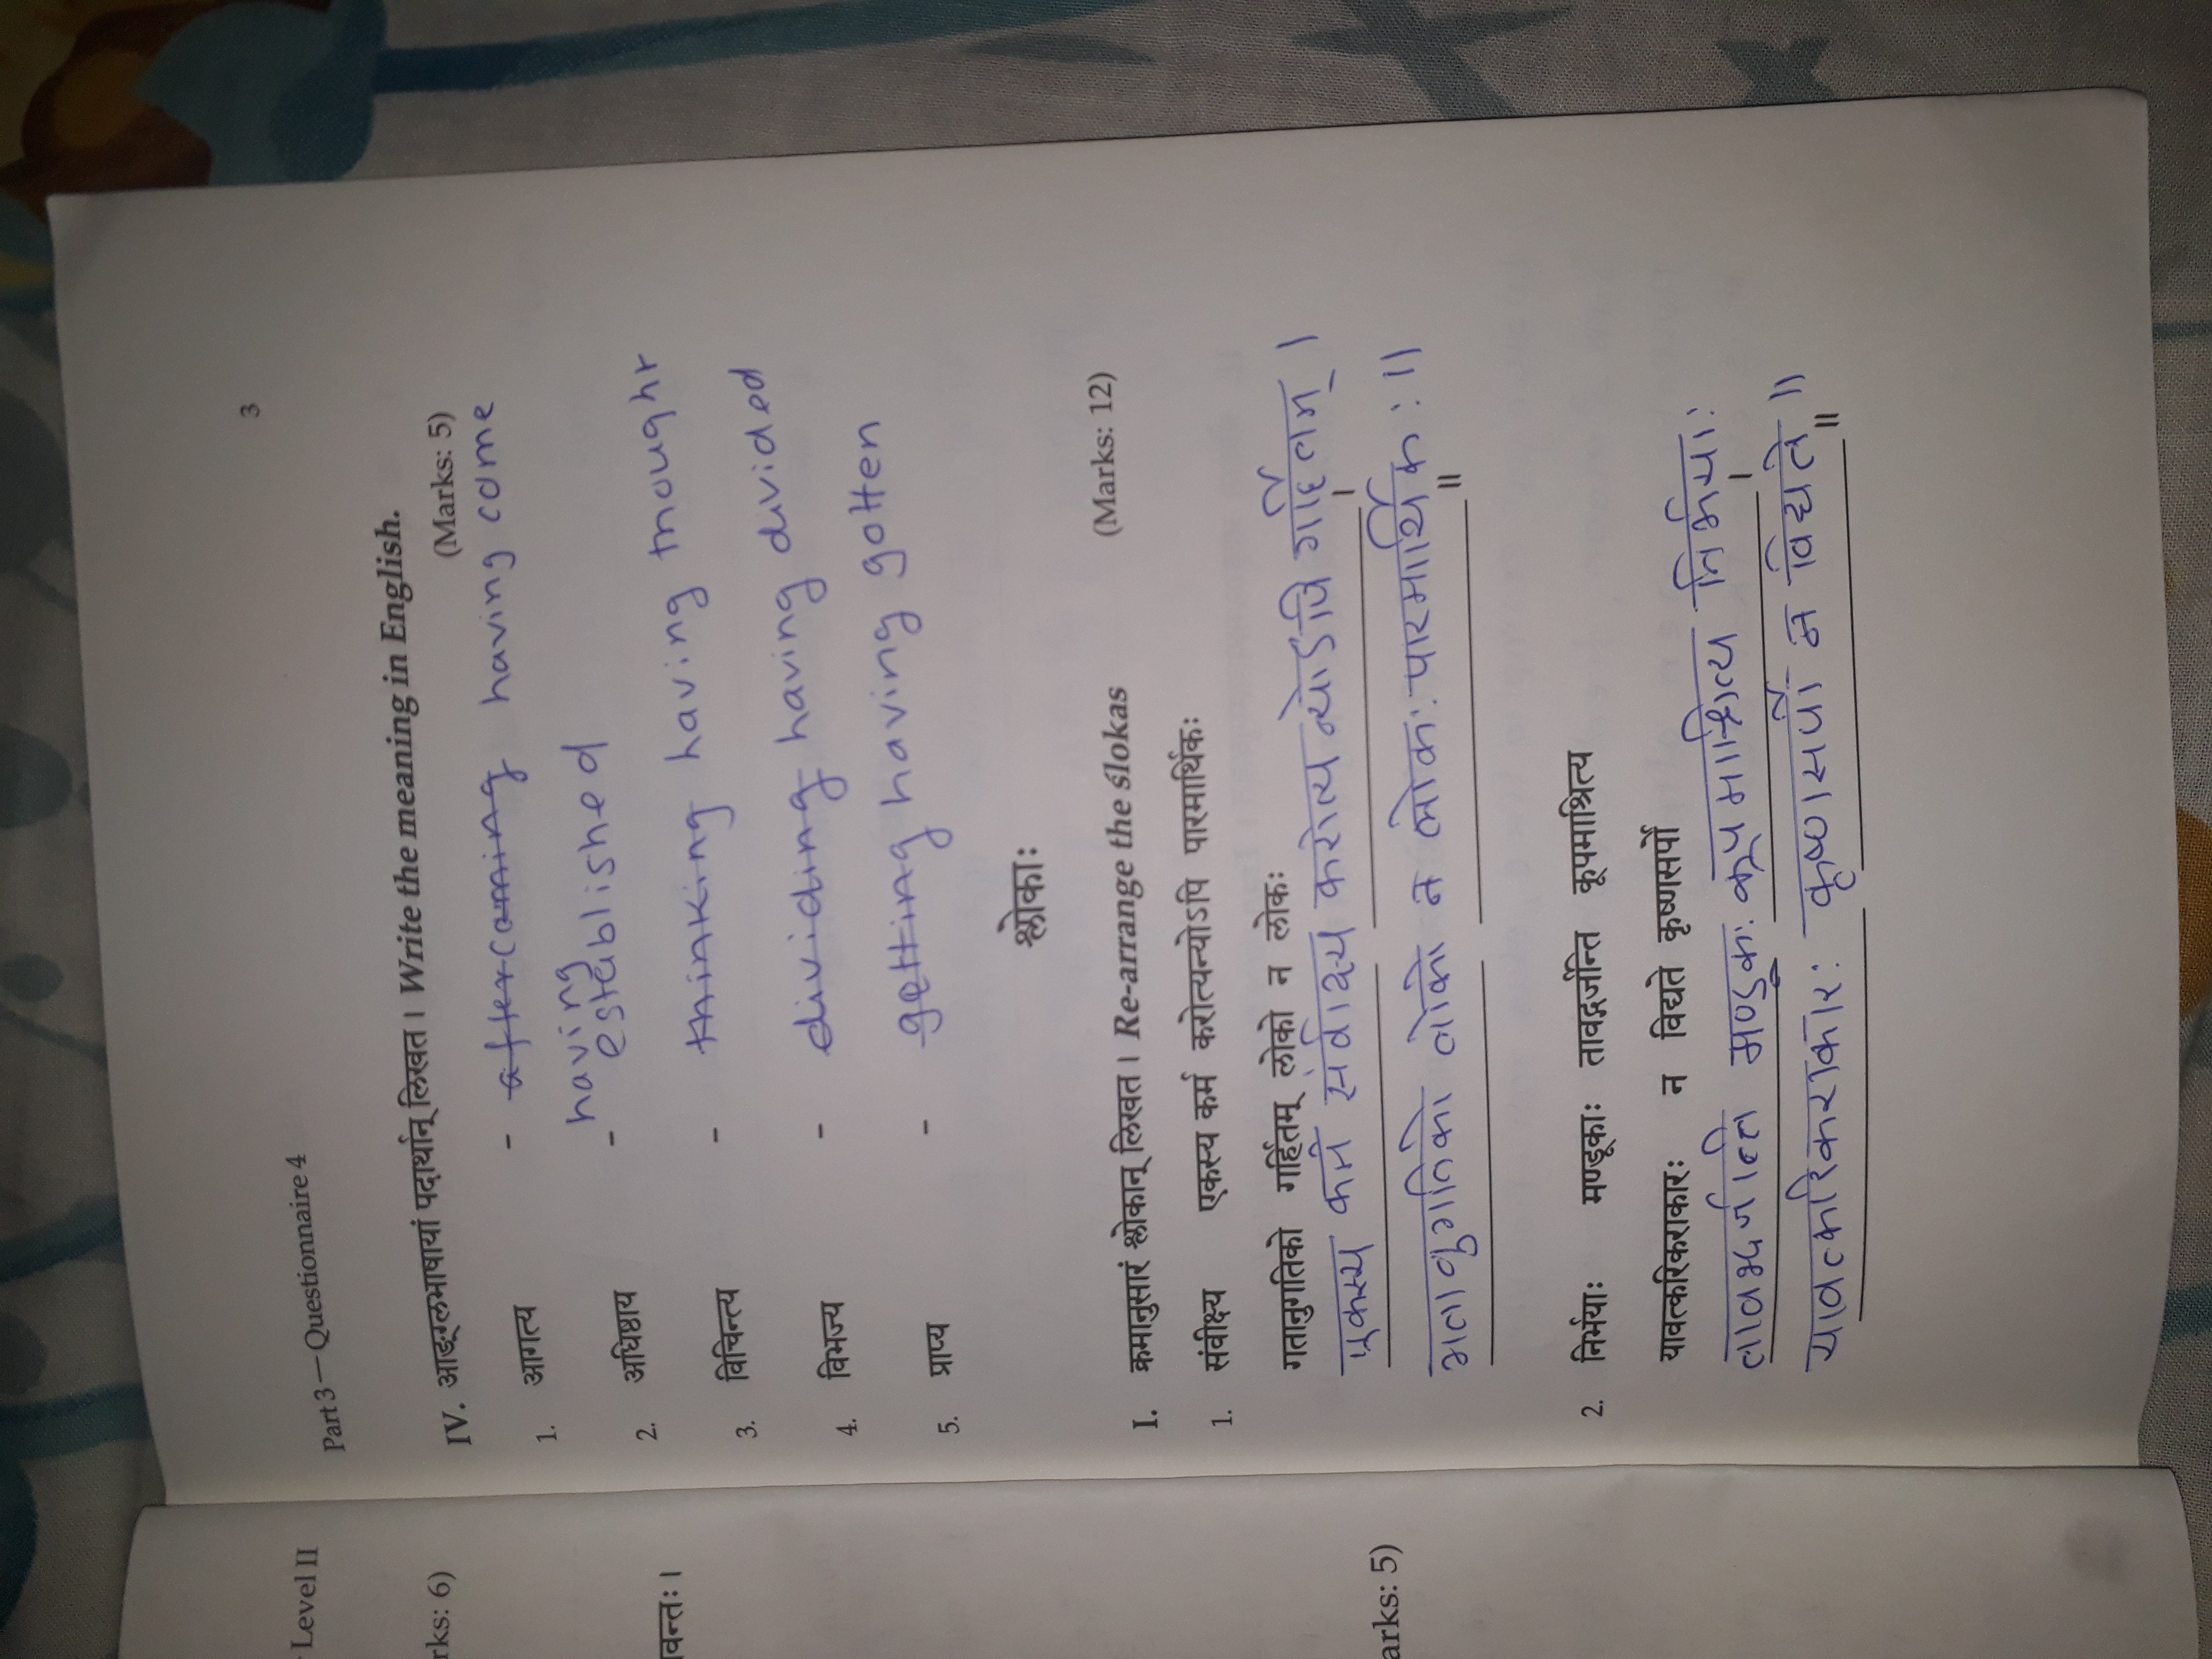 Level II
rks: 6)
वन्तः।
arks: 5)
3
Part 3 — Questionnaire 4
IV. आङ्ग्लभाषायां पदार्थान् लिखत। Write the meaning in English.
(Marks: 5)
1. आगत्य - aftercoming having come
having
2. अधिष्ठाय - established
3. विचिन्त्य - thinking having thought
4. विभज्य - dividing having divided
5. प्राप्य - getting having gotten
श्लोकाः
I. क्रमानुसारं श्लोकान् लिखत। Re-arrange the ślokas (Marks: 12)
1. संवीक्ष्य एकस्य कर्म करोत्यन्योऽपि पारमार्थिकः
गतानुगतिको गर्हितम् लोको न लोकः
एकस्य कर्म संवीक्ष्य करोत्यन्योऽपि गर्हितम् ।
गतानुगतिको लोको न लोकः पारमार्थिकः ॥
2. निर्भयाः मण्डूकाः तावद्गर्जन्ति कूपमाश्रित्य
यावत्करिकराकारः न विद्यते कृष्णसर्पो
तावद्गर्जन्ति मण्डुकाः कूपमाश्रित्य निर्भयाः ।
यावत्करिकराकारः कृष्णसर्पो न विद्यते ॥